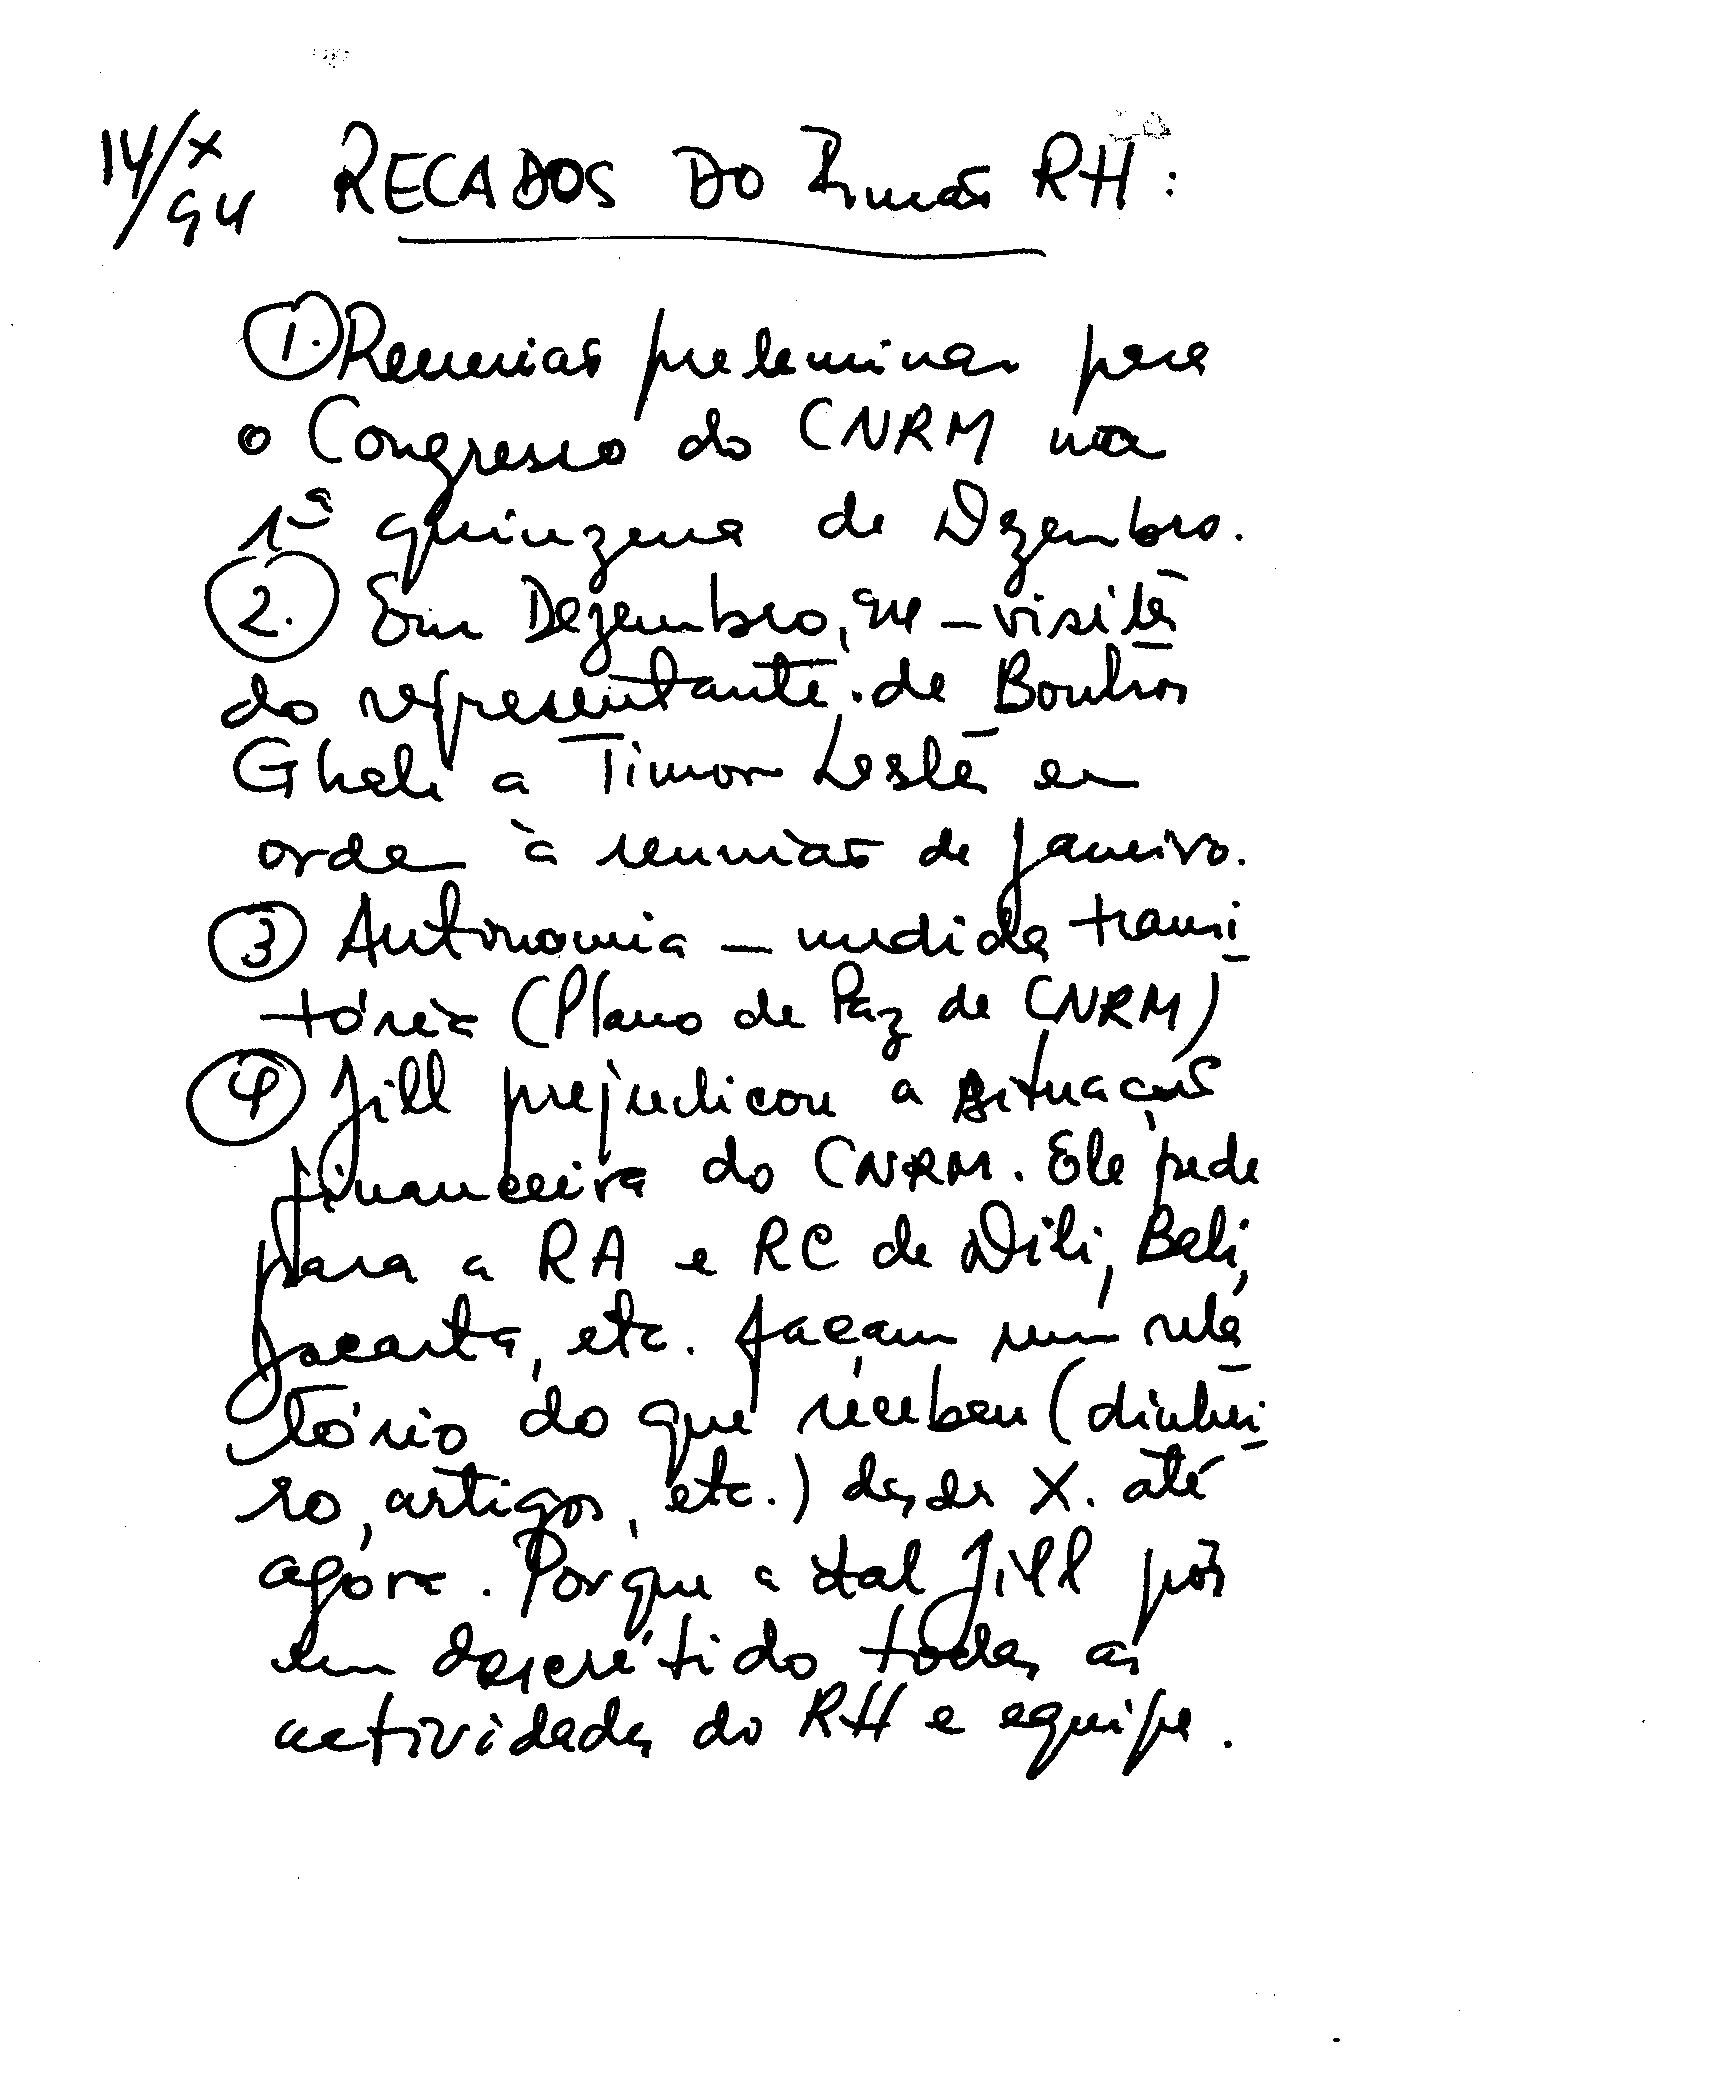 14/X/94 RECADOS DO Irmão RH:
1. Reunião preleminar para
o Congresso do CNRM na
1ª quinzena de Dezembro.
2. Em Dezembro, - visita
do representante de Boutros
Ghali a Timor Leste em
ordem à reunião de Janeiro.
3 Autonomia - medida transi
tória (Plano de Paz de CNRM)
4 Jill prejudicou a situação
financeira do CNRM. Ele pede
para a RA e RC de Dili, Bali,
Jacarta, etc. façam um rela
tório do que receben (dinhei
ro, artigos, etc.) desde X. até
agora. Porque a tal Jill pôs
em descrétido todas as
actividades do RH e equipe.